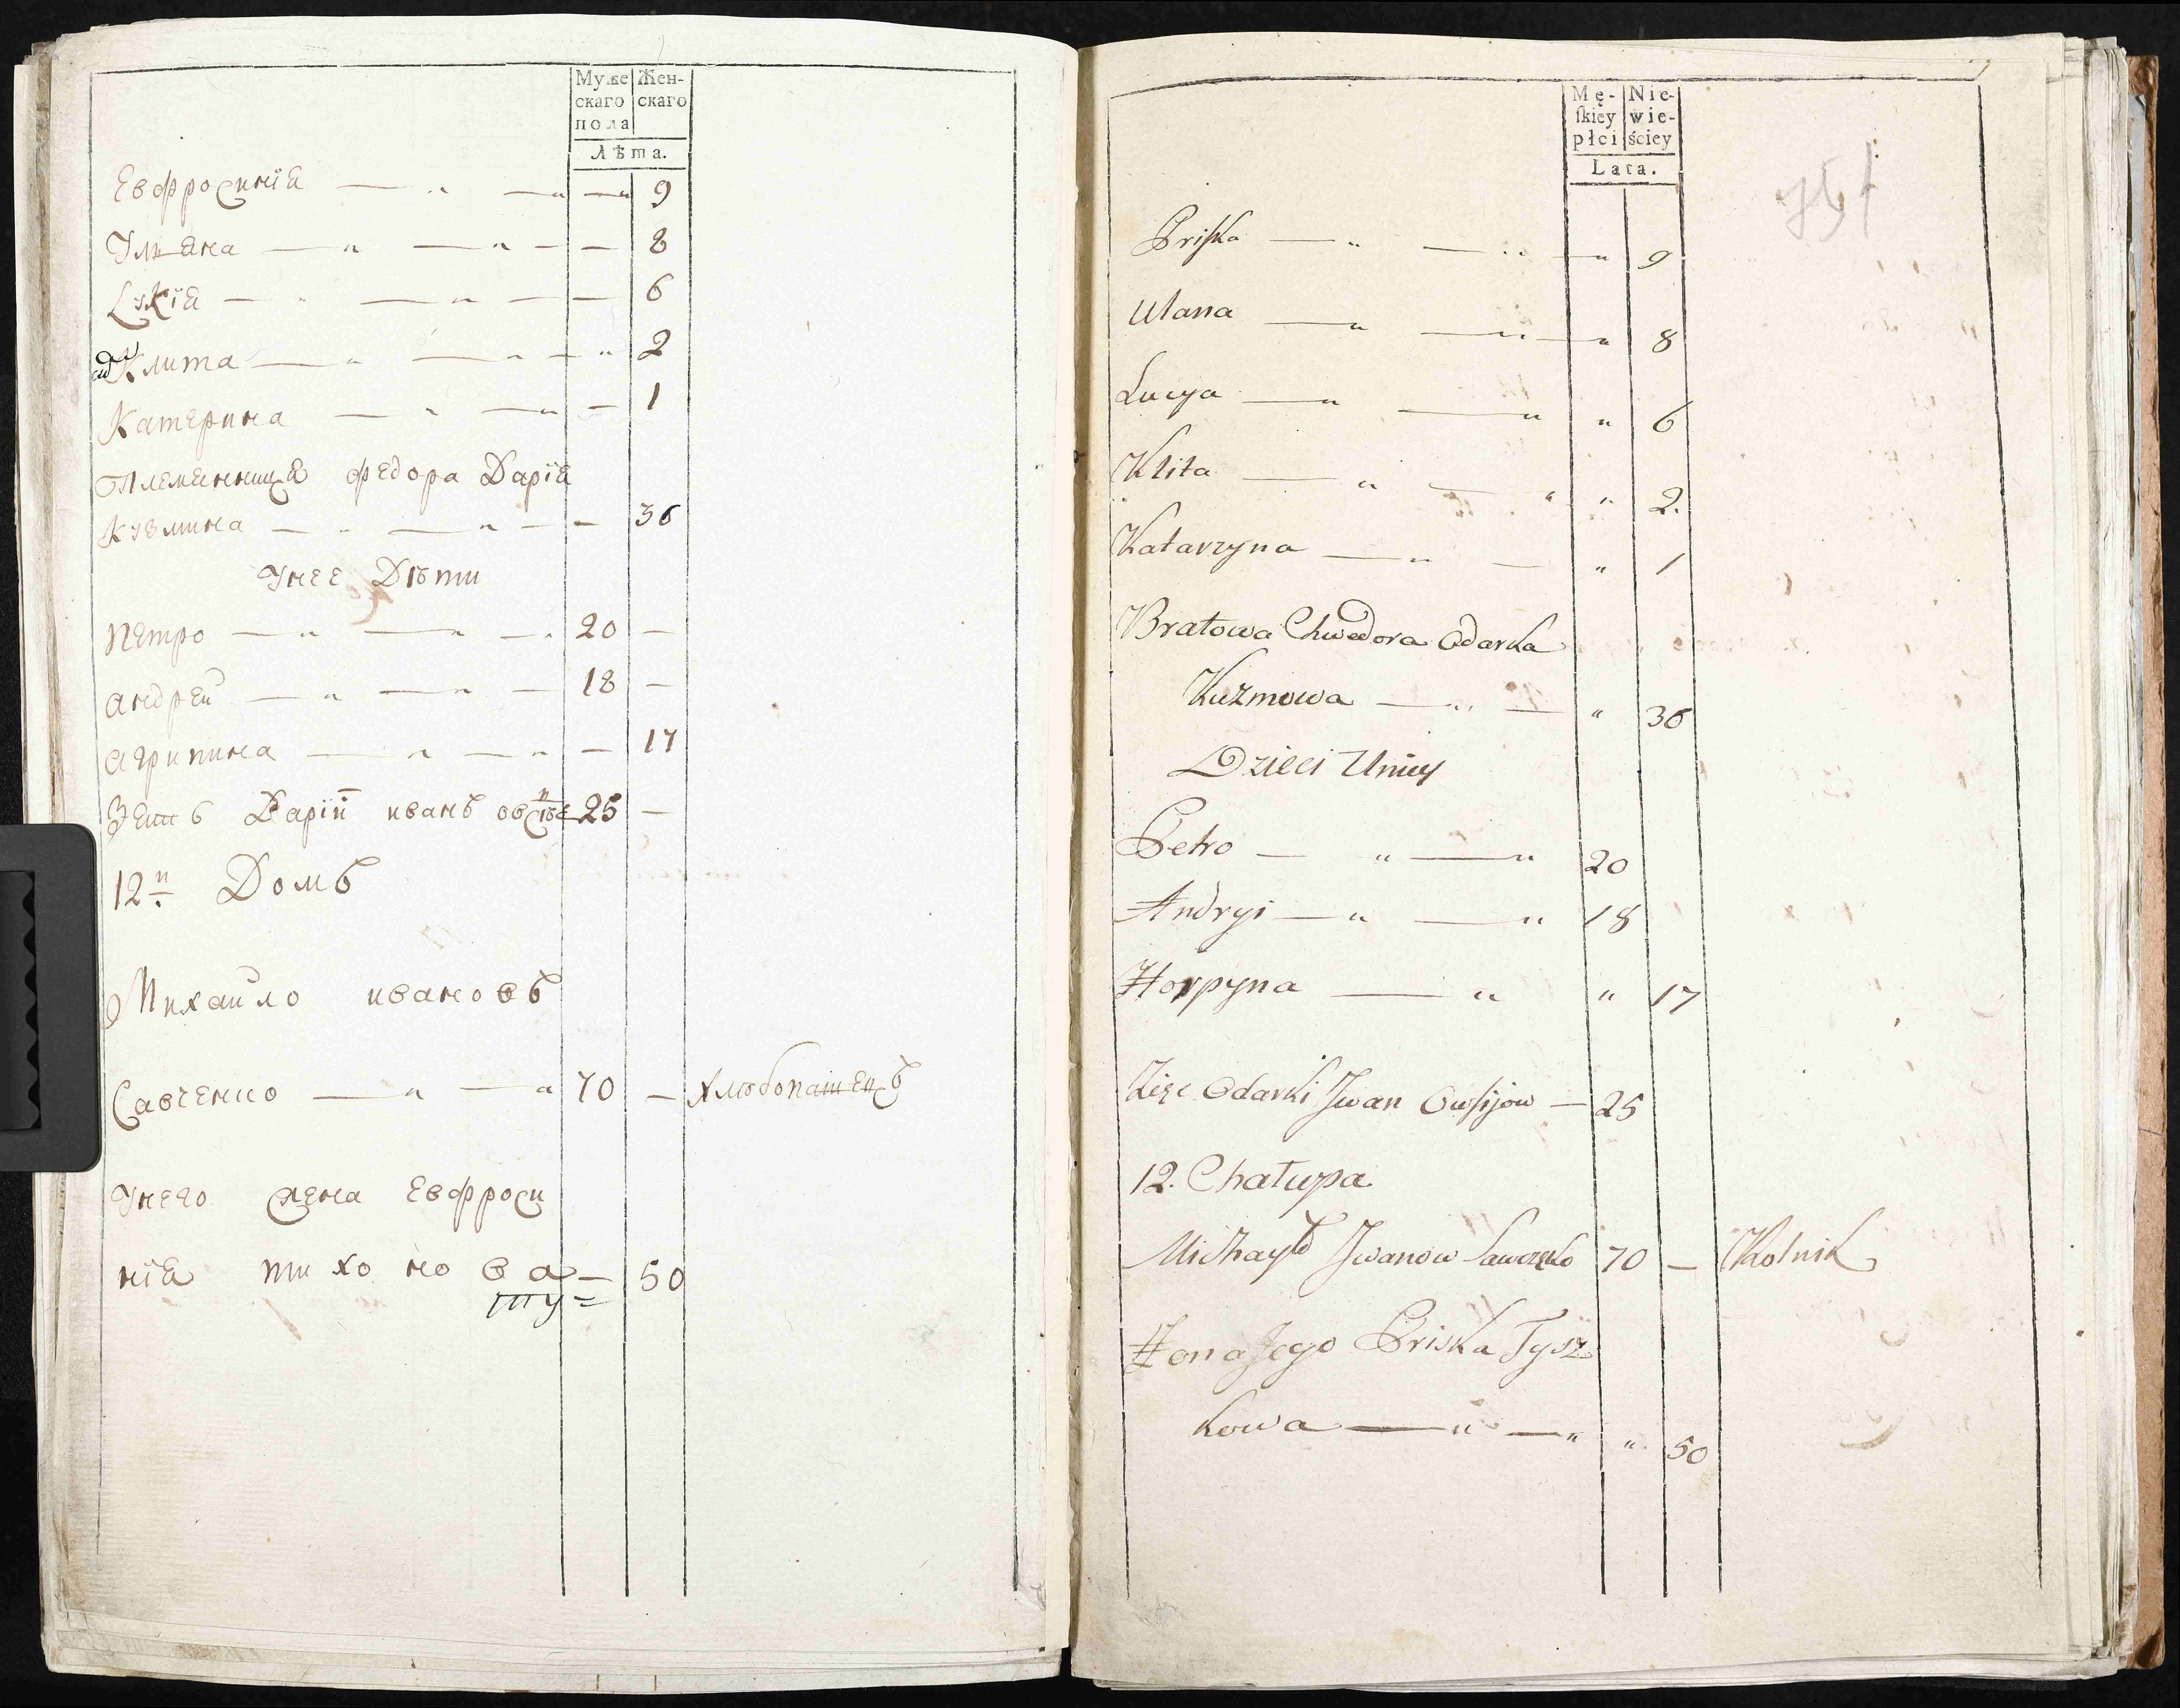 Муже Жен-
скаго скаго
пола
Лѣта.
Евфросинїя — „ — „ — „ 9
Улияна — „ — „ — — 8
Лукїя — „ — „ — — 6
Клита — „ — „ — „ 2
Катерина — „ — „ — 1
Племенница Федора Дарїя
Кузмина — „ — „ — — 36
Унее Дѣти
Петро — „ — „ — „ 20 —
Андрей — „ — „ — 18 —
Агрипина — „ — „ — 17
Зеть Дарїи иванъ 25 —
12й Домъ
Михайло ивановъ
Савченко — „ — „ 70 — хлѣбопашецъ
Унего жена Евфроси
нїя тихонова — 50
Mę- Nie-
ſkiey wie-
płci ściey
Lata.
Priſka — „ — „ — „ 9
Ulana — „ — „ — „ 8
Lucya — „ — „ „ 6
Klita — „ — „ „ 2.
Katarzyna — „ — „ 1
Bratowa Chwedora Odarka
Kuzmowa — „ — „ 36
Dzieci Uniey
Petro — „ — „ 20
Andryi — „ — „ 18
Horpyna — „ „ 17
Zięc Odarki Jwan Owſijow — 25
12. Chałupa
Michayło Jwanow Sawczenko 70 — Rolnik
Żona Jego Priska Tysz
kowa — „ — „ „ 50